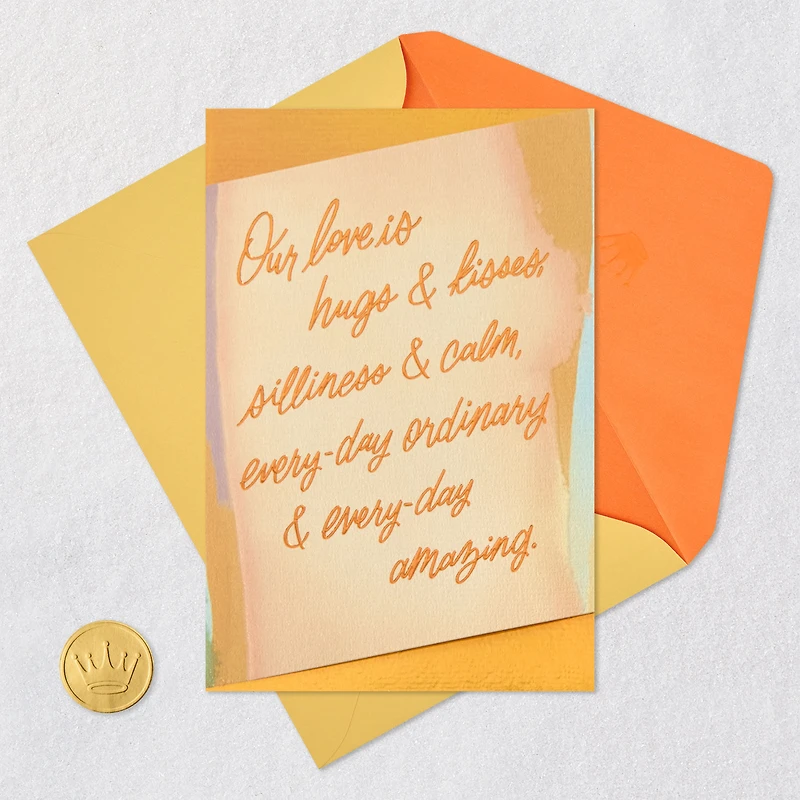 Our love is
hugs & kisses,
silliness & calm,
every-day ordinary
& every-day
amazing.